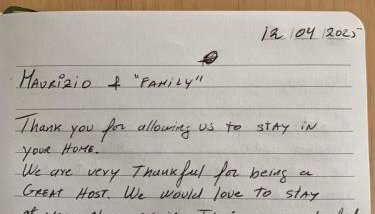 12/04/2025
MAURIZIO & "FAMILY"
Thank you for allowing us to STAY IN
YOUR HOME.
We are very Thankful for being a
GREAT HOST. We would love to STAY
at